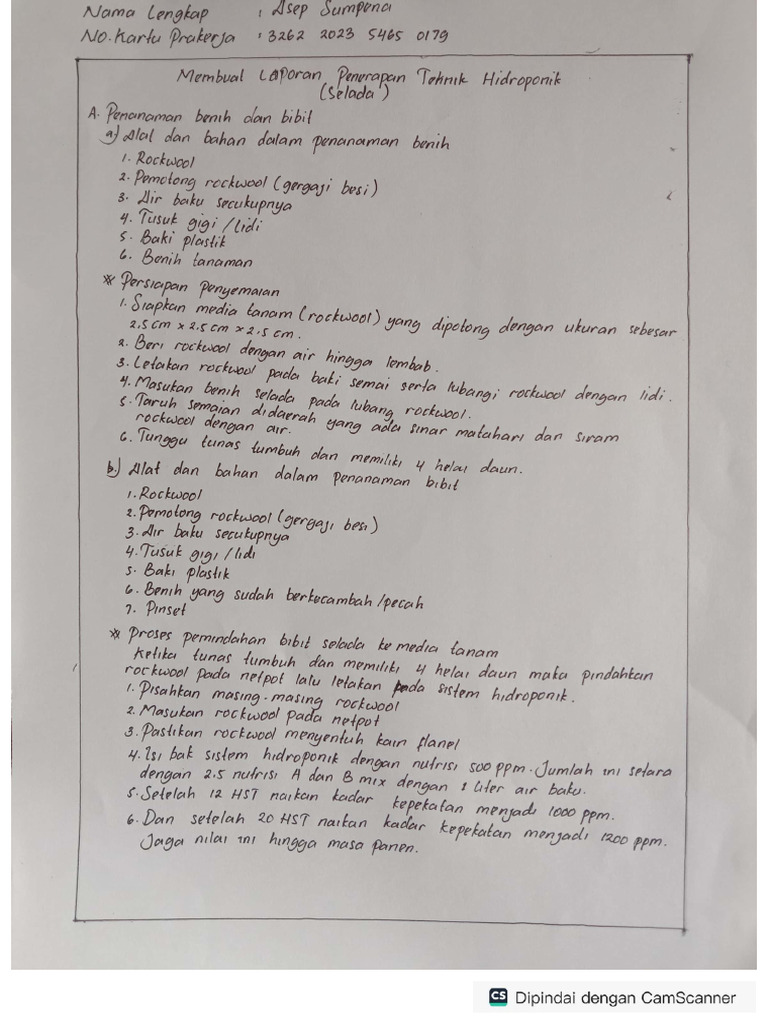 Nama Lengkap : Asep Sumpena
No. Kartu Prakerja : 3262 2023 5465 0179
Membual Laporan Penerapan Tehnik Hidroponik
(Selada)
A. Penanaman benih dan bibit
a) Alat dan bahan dalam penanaman benih
1. Rockwool
2. Pemotong rockwool (gergaji besi)
3. Air baku secukupnya
4. Tusuk gigi / lidi
5. Baki plastik
6. Benih tanaman
* Persiapan Penyemaian
1. Siapkan media tanam (rockwool) yang dipotong dengan ukuran sebesar
2.5 cm x 2.5 cm x 2.5 cm.
2. Beri rockwool dengan air hingga lembab.
3. Letakan rockwool pada baki semai serta lubangi rockwool dengan lidi.
4. Masukan benih selada pada lubang rockwool.
5. Taruh semaian didaerah yang ada sinar matahari dan siram
rockwool dengan air.
6. Tunggu tunas tumbuh dan memiliki 4 helai daun.
b.) Alat dan bahan dalam penanaman bibit
1. Rockwool
2. Pemotong rockwool (gergaji besi)
3. Air baku secukupnya
4. Tusuk gigi / lidi
5. Baki plastik
6. Benih yang sudah berkecambah /pecah
7. Pinset
* Proses pemindahan bibit selada ke media tanam
Ketika tunas tumbuh dan memiliki 4 helai daun maka pindahkan
rockwool pada netpot lalu letakan pada sistem hidroponik.
1. Pisahkan masing-masing rockwool
2. Masukan rockwool pada netpot
3. Pastikan rockwool menyentuh kain flanel
4. Isi bak sistem hidroponik dengan nutrisi 500 ppm. Jumlah ini setara
dengan 2.5 nutrisi A dan B mix dengan 1 liter air baku.
5. Setelah 12 HST naikan kadar kepekatan menjadi 1000 ppm.
6. Dan setelah 20 HST naikan kadar kepekatan menjadi 1200 ppm.
Jaga nilai ini hingga masa panen.
CS Dipindai dengan CamScanner